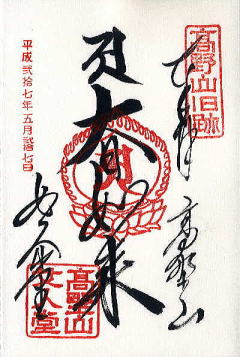 高野山旧跡
奉拝
高野山
大日如来
女人堂
高野山
女人堂
平成貳拾七年五月拾七日